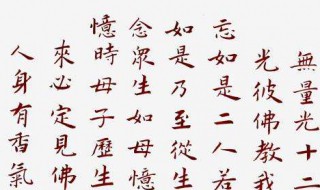 無量光十二
光彼佛教我
忘如是二人若
如是乃至從生
念眾生如母憶
憶時母子歷生
來必定見佛
人身有香氣